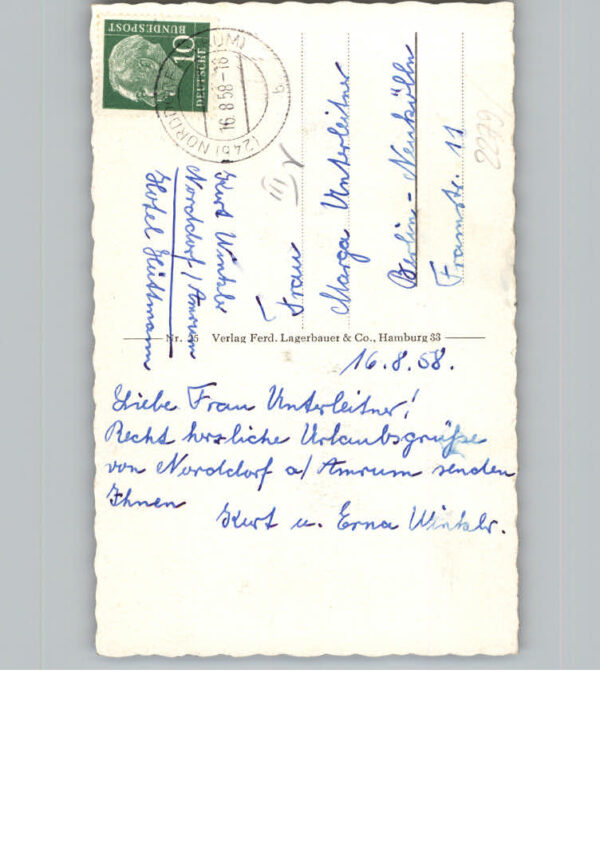 DEUTSCHE
BUNDESPOST
10
(24b) NORDDORF (AMRUM)
16.8.58-18
b
Kurt Winkler
Norddorf/Amrum
Hotel Hüttmann
III
Frau
Marga Unterleitner
Berlin-Neukölln
Framstr. 11
2279/
Nr. 35 Verlag Ferd. Lagerbauer & Co., Hamburg 33
16.8.58.
Liebe Frau Unterleitner!
Recht herzliche Urlaubsgrüße
von Norddorf a/Amrum senden
Ihnen
Kurt u. Erna Winkler.